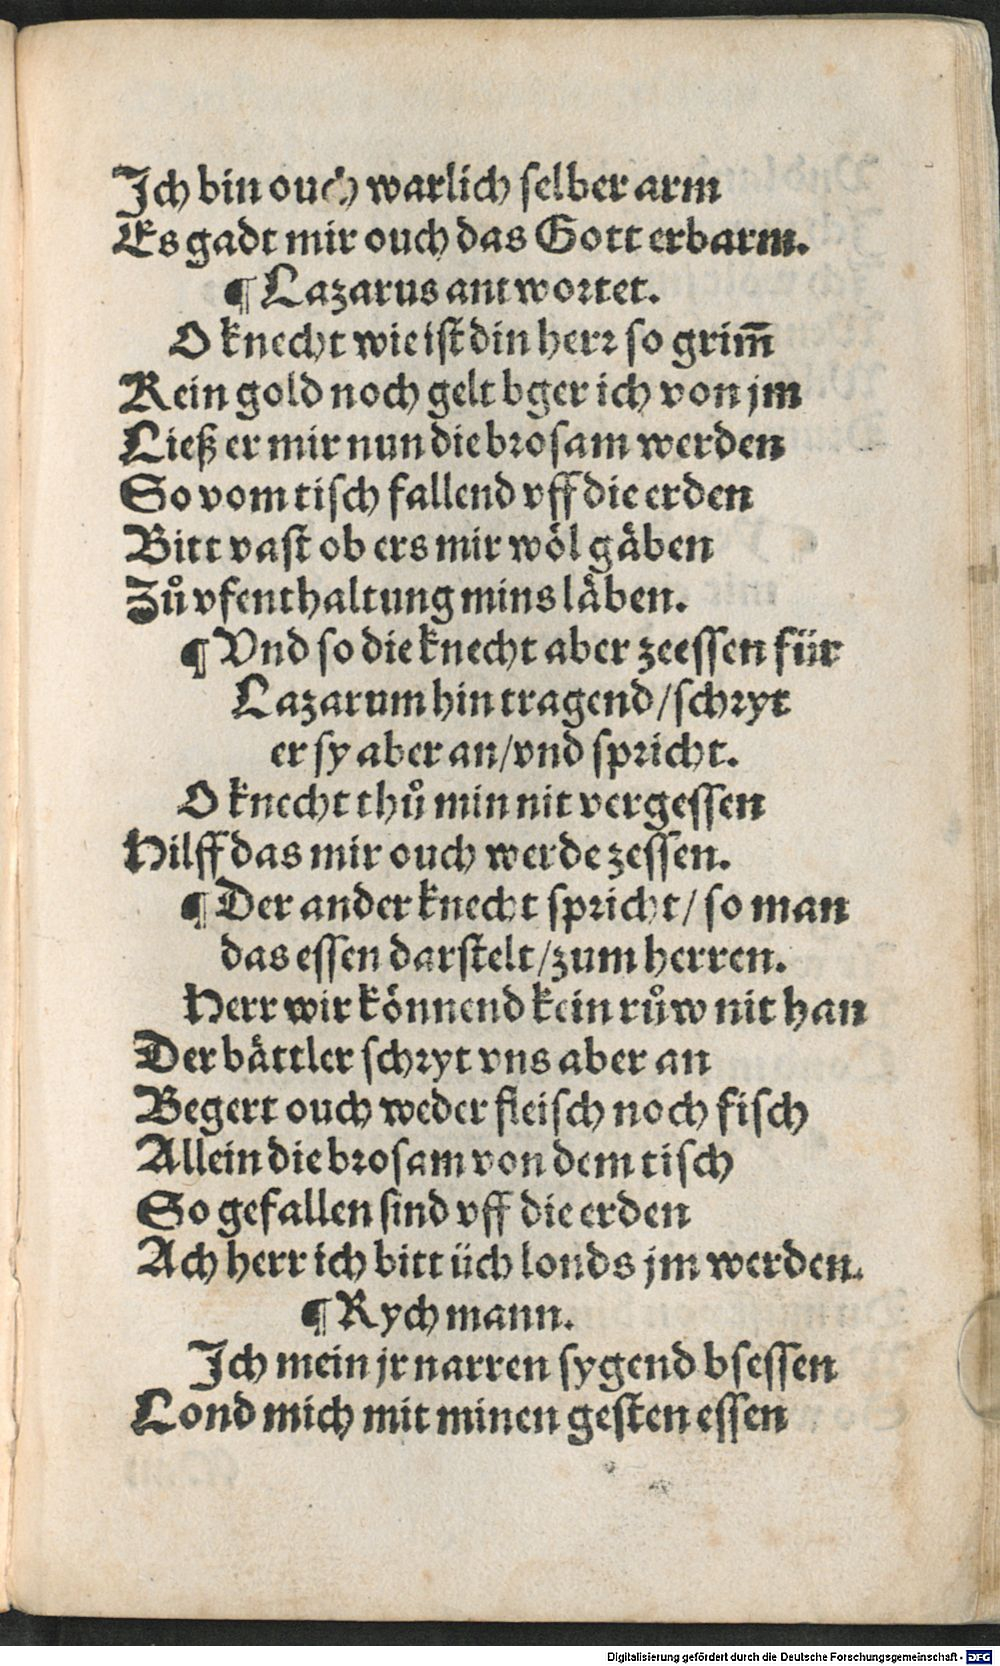 Ich bin ouch warlich selber arm
Es gadt mir ouch das Gott erbarm.
¶ Lazarus antwortet.
O knecht wie ist din herr so grim̄
Kein gold noch gelt bger ich von jm
Ließ er mir nun die brosam werden
So vom tisch fallend vff die erden
Bitt vast ob ers mir wöl gåben
Zů vfenthaltung mins låben.
¶ Vnd so die knecht aber zeessen für
Lazarum hin tragend/schryt
er sy aber an/vnd spricht.
O knecht thů min nit vergessen
Hilff das mir ouch werde zessen.
¶ Der ander knecht spricht/ so man
das essen darstelt/zum herren.
Herr wir könnend kein růw nit han
Der båttler schryt vns aber an
Begert ouch weder fleisch noch fisch
Allein die brosam von dem tisch
So gefallen sind vff die erden
Ach herr ich bitt üch londs jm werden.
¶ Rych mann.
Ich mein jr narren sygend bsessen
Lond mich mit minen gesten essen
Digitalisierung gefördert durch die Deutsche Forschungsgemeinschaft - DFG